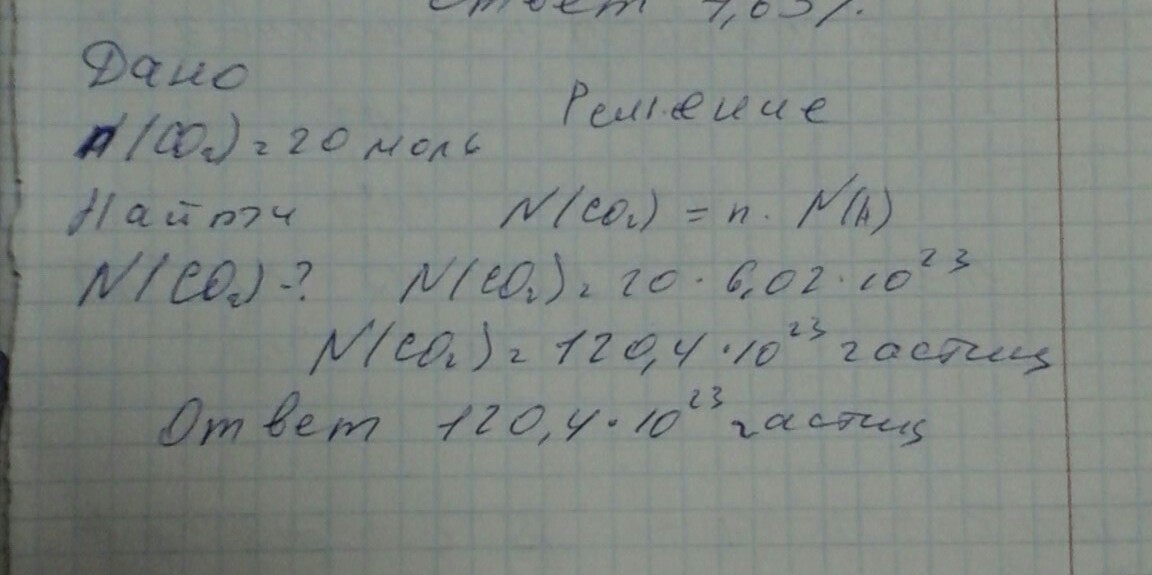 Ответ 1,63%.
Дано
Решение
n(CO₂) = 20 моль
Найти
N(CO₂) = n · N(A)
N(CO₂) - ?
N(CO₂) = 20 · 6,02 · 10²³
N(CO₂) = 120,4 · 10²³ частиц
Ответ 120,4 · 10²³ частиц